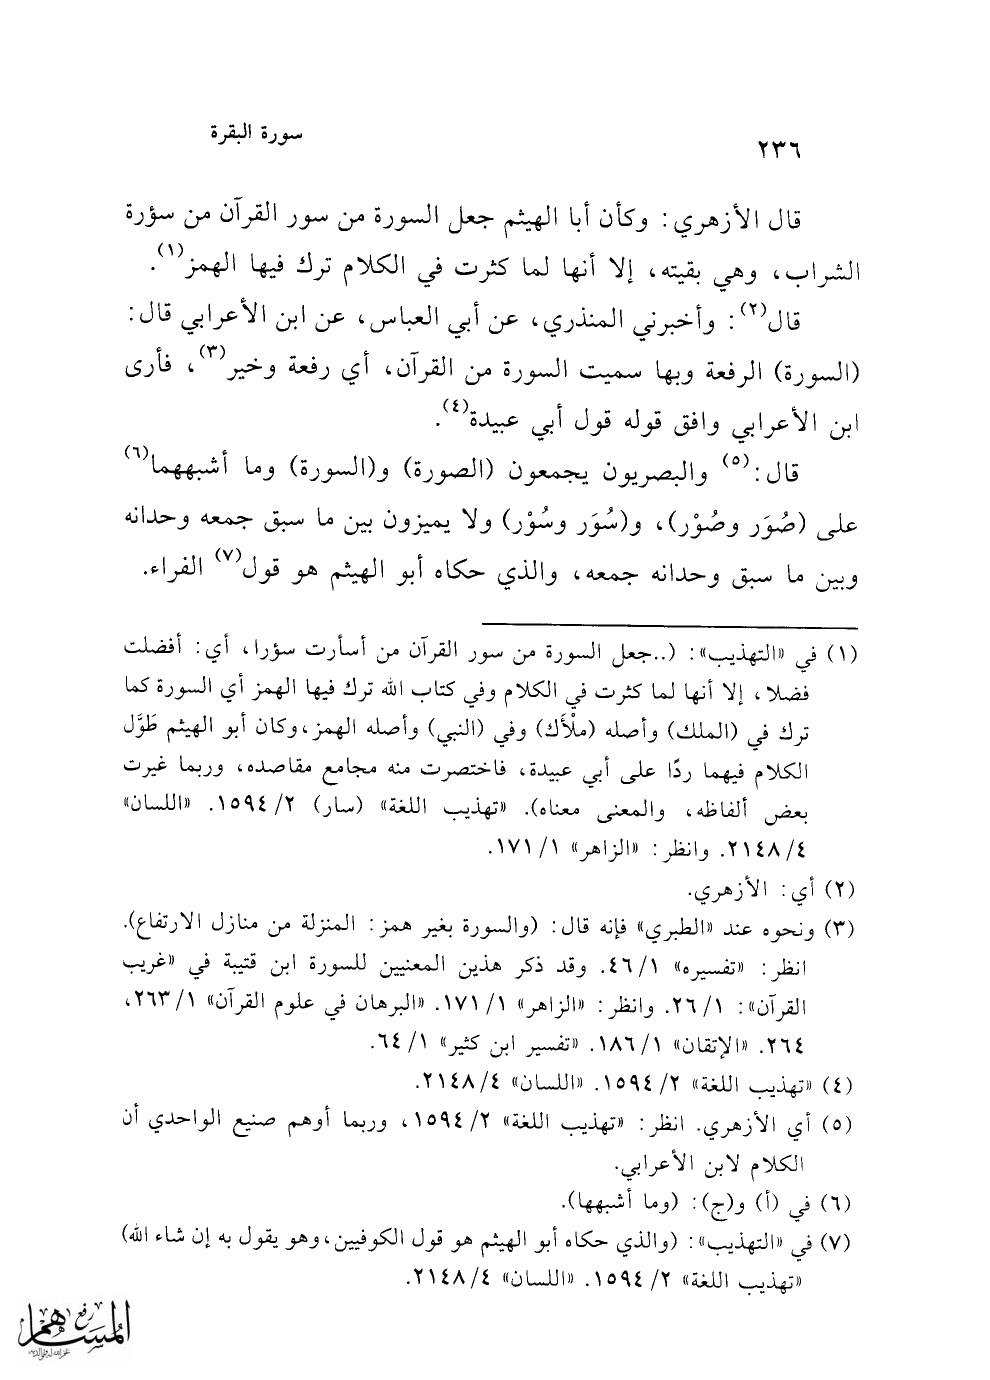 ٢٣٦
سورة البقرة
قال الأزهري: وكأن أبا الهيثم جعل السورة من سور القرآن من سؤرة
الشراب، وهي بقيته، إلا أنها لما كثرت في الكلام ترك فيها الهمز(١).
قال(٢): وأخبرني المنذري، عن أبي العباس، عن ابن الأعرابي قال:
(السورة) الرفعة وبها سميت السورة من القرآن، أي رفعة وخير(٣)، فأرى
ابن الأعرابي وافق قوله قول أبي عبيدة(٤).
قال:(٥) والبصريون يجمعون (الصورة) و(السورة) وما أشبههما(٦)
على (صُوَر وصُوْر)، و(سُوَر وسُوْر) ولا يميزون بين ما سبق جمعه وحدانه
وبين ما سبق وحدانه جمعه، والذي حكاه أبو الهيثم هو قول(٧) الفراء.
(١) في «التهذيب»: (..جعل السورة من سور القرآن من أسأرت سؤرا، أي: أفضلت
فضلا، إلا أنها لما كثرت في الكلام وفي كتاب الله ترك فيها الهمز أي السورة كما
ترك في (الملك) وأصله (ملْأَك) وفي (النبي) وأصله الهمز،وكان أبو الهيثم طَوَّل
الكلام فيهما ردًا على أبي عبيدة، فاختصرت منه مجامع مقاصده، وربما غيرت
بعض ألفاظه، والمعنى معناه). «تهذيب اللغة» (سار) ٢/ ١٥٩٤. «اللسان»
٤/ ٢١٤٨. وانظر: «الزاهر» ١/ ١٧١.
(٢) أي: الأزهري.
(٣) ونحوه عند «الطبري» فإنه قال: (والسورة بغير همز: المنزلة من منازل الارتفاع).
انظر: «تفسيره» ١/ ٤٦. وقد ذكر هذين المعنيين للسورة ابن قتيبة في «غريب
القرآن»: ١/ ٢٦. وانظر: «الزاهر» ١/ ١٧١. «البرهان في علوم القرآن» ١/ ٢٦٣،
٢٦٤. «الإتقان» ١/ ١٨٦. «تفسير ابن كثير» ١/ ٦٤.
(٤) «تهذيب اللغة» ٢/ ١٥٩٤. «اللسان» ٤/ ٢١٤٨.
(٥) أي الأزهري. انظر: «تهذيب اللغة» ٢/ ١٥٩٤، وربما أوهم صنيع الواحدي أن
الكلام لابن الأعرابي.
(٦) في (أ) و(ج): (وما أشبهها).
(٧) في «التهذيب»: (والذي حكاه أبو الهيثم هو قول الكوفيين،وهو يقول به إن شاء الله)
«تهذيب اللغة» ٢/ ١٥٩٤. «اللسان» ٤/ ٢١٤٨.